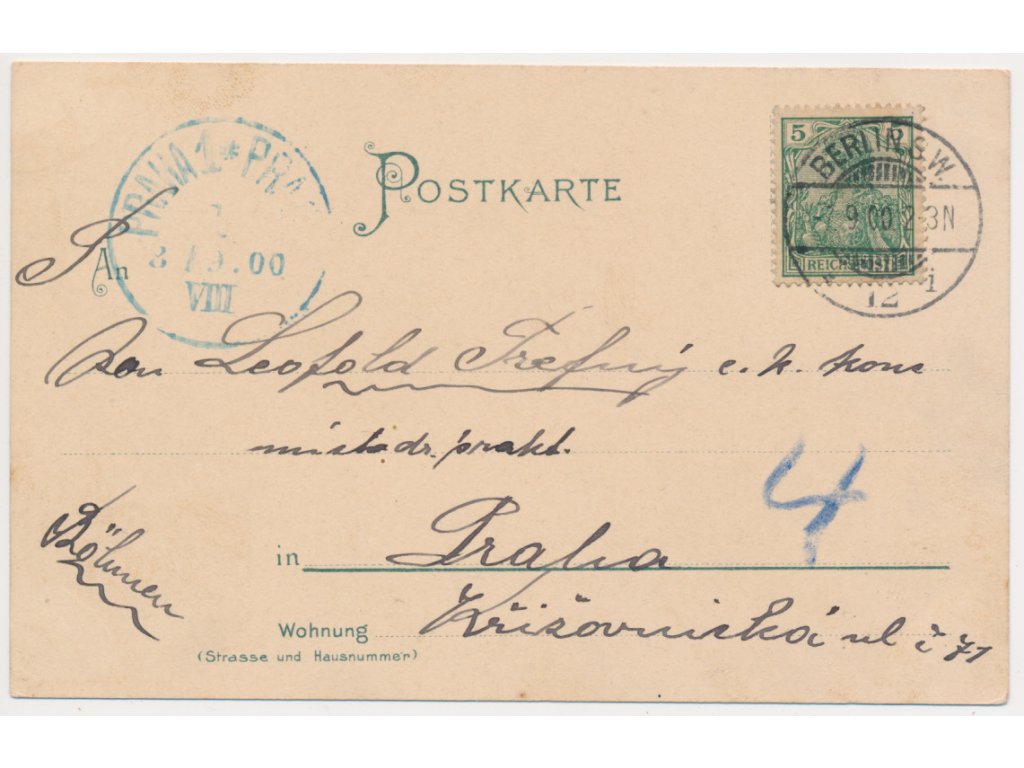 POSTKARTE
5
REICHSPOST
BERLIN S.W.
9.00 2-3N
12 i
PRAHA 1 * PRAG
8/9.00
VIII
An
Leopold Trefný c. k. konc
místodr. prakt.
Böhmen
in Praha
Wohnung Křižovnická ul č 71
(Strasse und Hausnummer)
4